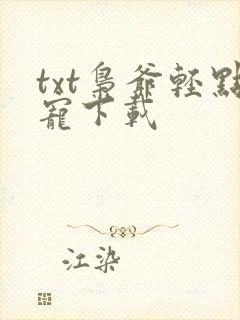 txt梟爺輕點
寵下載
江染